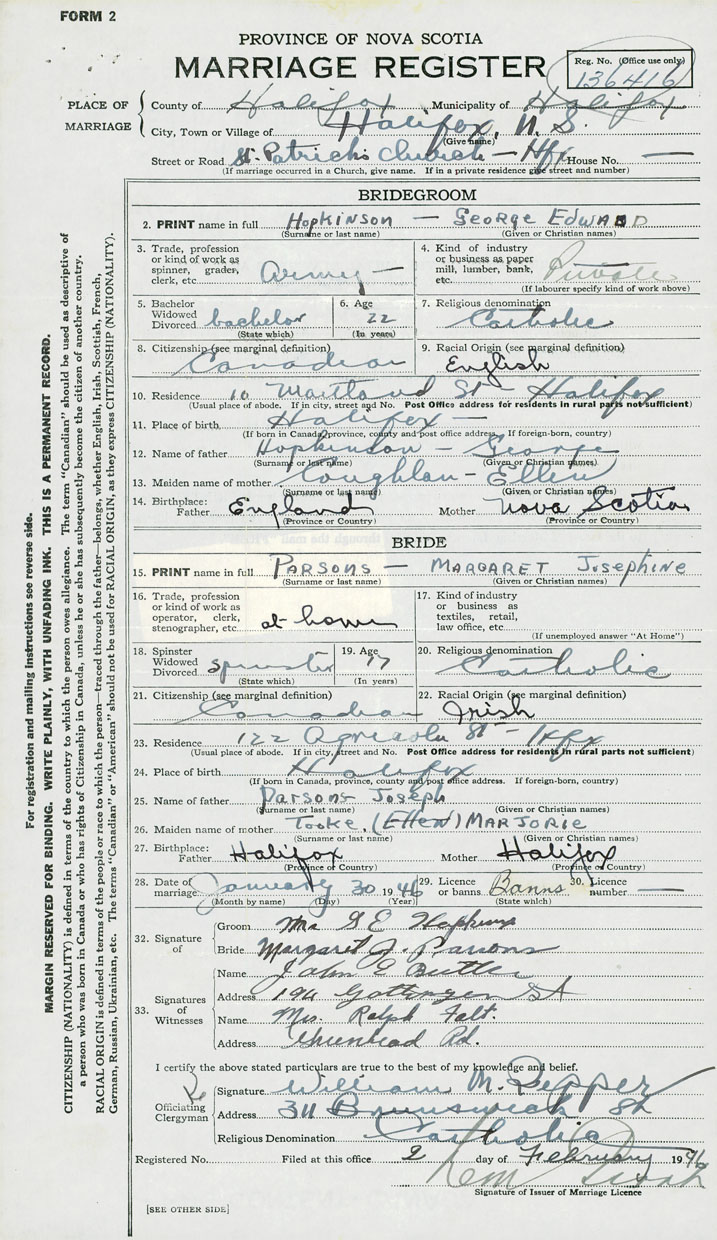 FORM 2
PROVINCE OF NOVA SCOTIA
MARRIAGE REGISTER
Reg. No. (Office use only)
136416
PLACE OF MARRIAGE
County of Halifax Municipality of Halifax
City, Town or Village of Halifax, N. S.
(Give name)
Street or Road St. Patrick's Church - Hfx House No. —
(If marriage occurred in a Church, give name. If in a private residence give street and number)
BRIDEGROOM
2. PRINT name in full HOPKINSON — GEORGE EDWARD
(Surname or last name) (Given or Christian names)
3. Trade, profession or kind of work as spinner, grader, clerk, etc. Army —
4. Kind of industry or business as paper mill, lumber, bank, etc. Private
(If labourer specify kind of work above)
5. Bachelor Widowed Divorced bachelor
(State which)
6. Age 22
(In years)
7. Religious denomination Catholic
8. Citizenship (see marginal definition) Canadian
9. Racial Origin (see marginal definition) English
10. Residence 10 Maitland St - Halifax
(Usual place of abode. If in city, street and No. Post Office address for residents in rural parts not sufficient)
11. Place of birth Halifax —
(If born in Canada, province, county and post office address. If foreign-born, country)
12. Name of father Hopkinson - George
(Surname or last name) (Given or Christian names)
13. Maiden name of mother Coughlan - Ellen
(Surname or last name) (Given or Christian names)
14. Birthplace: Father England Mother Nova Scotia
(Province or Country) (Province or Country)
BRIDE
15. PRINT name in full PARSONS — MARGARET JOSEPHINE
(Surname or last name) (Given or Christian names)
16. Trade, profession or kind of work as operator, clerk, stenographer, etc. at home
17. Kind of industry or business as textiles, retail, law office, etc.
(If unemployed answer "At Home")
18. Spinster Widowed Divorced spinster
(State which)
19. Age 17
(In years)
20. Religious denomination Catholic
21. Citizenship (see marginal definition) Canadian
22. Racial Origin (see marginal definition) Irish
23. Residence 122 Agricola St - Hfx
(Usual place of abode. If in city, street and No. Post Office address for residents in rural parts not sufficient)
24. Place of birth Halifax
(If born in Canada, province, county and post office address. If foreign-born, country)
25. Name of father Parsons Joseph
(Surname or last name) (Given or Christian names)
26. Maiden name of mother Tooke, (Ellen) MARJORIE
(Surname or last name) (Given or Christian names)
27. Birthplace: Father Halifax Mother Halifax
(Province or Country) (Province or Country)
28. Date of marriage January 30 1946
(Month by name) (Day) (Year)
29. Licence or banns Banns
(State which)
30. Licence number —
32. Signature of
Groom Mr G E Hopkins
Bride Margaret J. Parsons
33. Signatures of Witnesses
Name John E Butler
Address 194 Gottingen St
Name Mrs. Ralph Falt.
Address Rd.
I certify the above stated particulars are true to the best of my knowledge and belief.
Officiating Clergyman
Signature William M. Pepper
Address 311 Brunswick St
Religious Denomination Catholic
Registered No. Filed at this office 2 day of February 1946
Signature of Issuer of Marriage Licence
[SEE OTHER SIDE]
For registration and mailing instructions see reverse side.
MARGIN RESERVED FOR BINDING. WRITE PLAINLY, WITH UNFADING INK. THIS IS A PERMANENT RECORD.
CITIZENSHIP (NATIONALITY) is defined in terms of the country to which the person owes allegiance. The term "Canadian" should be used as descriptive of
a person who was born in Canada or who has rights of Citizenship in Canada, unless he or she has subsequently become the citizen of another country.
RACIAL ORIGIN is defined in terms of the people or race to which the person—traced through the father—belongs, whether English, Irish, Scottish, French,
German, Russian, Ukrainian, etc. The terms "Canadian" or "American" should not be used for RACIAL ORIGIN, as they express CITIZENSHIP (NATIONALITY).